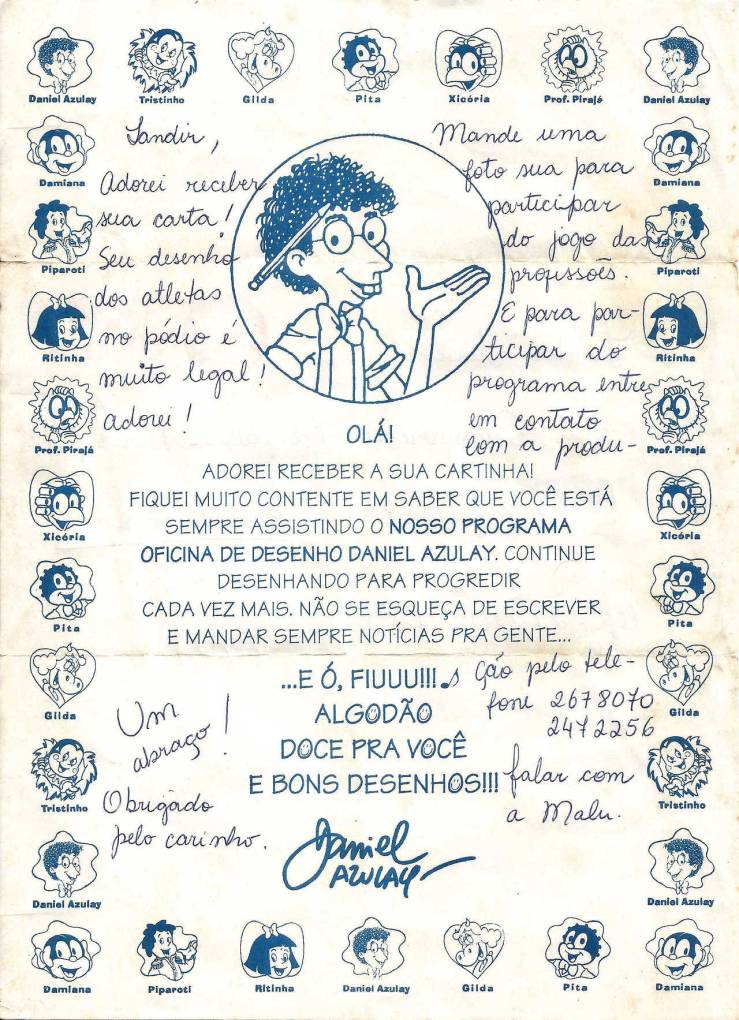 Daniel Azulay
Tristinho
Gilda
Pita
Xicória
Prof. Pirajá
Daniel Azulay
Damiana
Piparoti
Ritinha
Prof. Pirajá
Xicória
Pita
Gilda
Tristinho
Daniel Azulay
Sandir,
Adorei receber
sua carta!
Seu desenho
dos atletas
no pódio é
muito legal!
Adorei!
Mande uma
foto sua para
participar
do jogo das
profissões.
E para par-
ticipar do
programa entre
em contato
com a produ-
ção pelo tele-
fone 2678070
2472256
falar com
a Malu.
OLÁ!
ADOREI RECEBER A SUA CARTINHA!
FIQUEI MUITO CONTENTE EM SABER QUE VOCÊ ESTÁ
SEMPRE ASSISTINDO O NOSSO PROGRAMA
OFICINA DE DESENHO DANIEL AZULAY. CONTINUE
DESENHANDO PARA PROGREDIR
CADA VEZ MAIS. NÃO SE ESQUEÇA DE ESCREVER
E MANDAR SEMPRE NOTÍCIAS PRA GENTE...
...E Ó, FIUUU!!!
ALGODÃO
DOCE PRA VOCÊ
E BONS DESENHOS!!!
Um
abraço!
Obrigado
pelo carinho.
Daniel
AZULAY
Damiana
Piparoti
Ritinha
Prof. Pirajá
Xicória
Pita
Gilda
Tristinho
Daniel Azulay
Damiana
Piparoti
Ritinha
Daniel Azulay
Gilda
Pita
Damiana